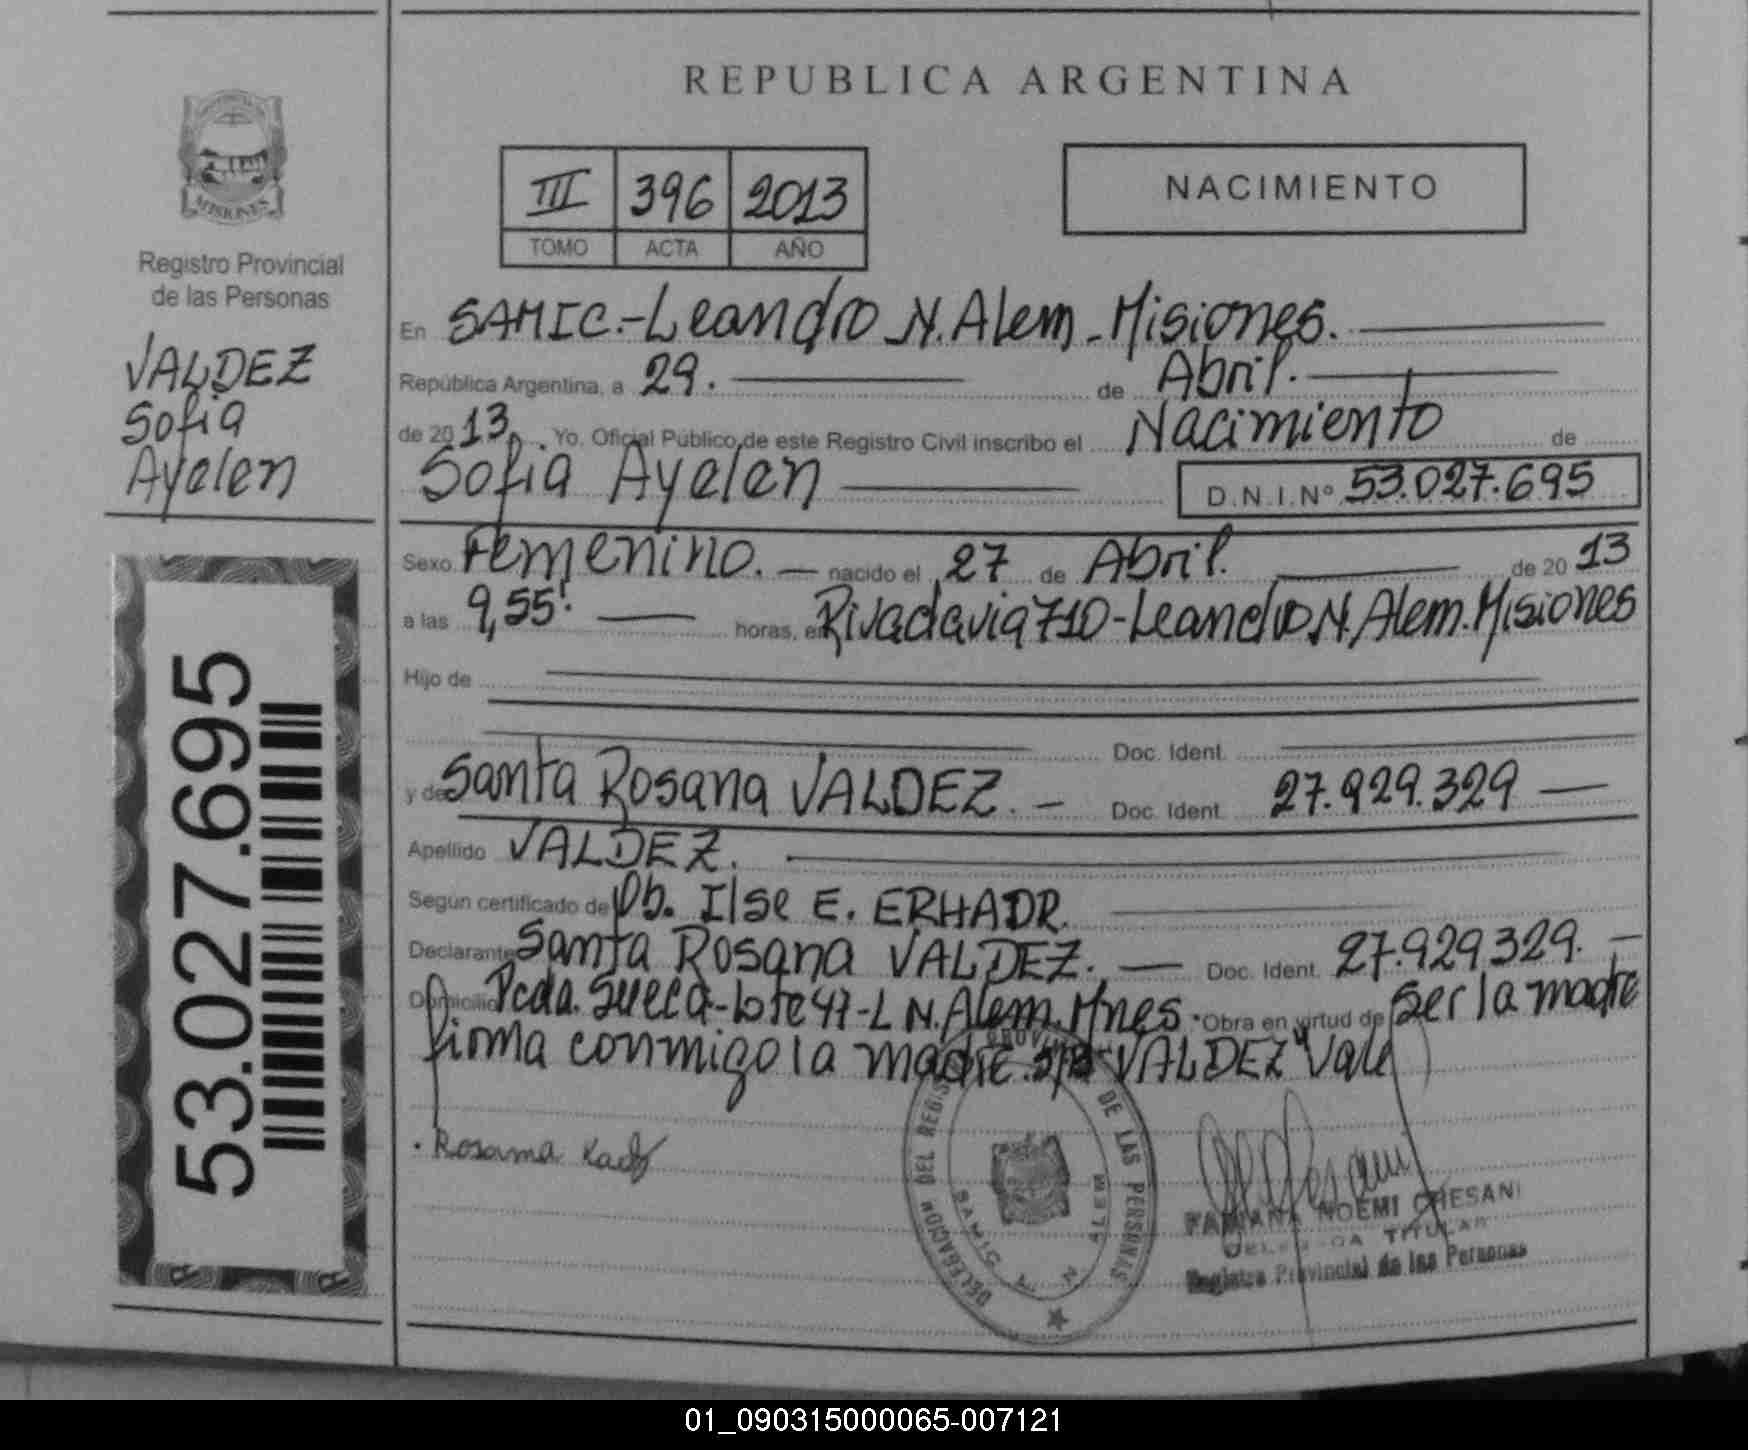 REPUBLICA ARGENTINA
MISIONES
Registro Provincial
de las Personas
VALDEZ
Sofia
Ayelen
53.027.695
III 396 2013
TOMO ACTA AÑO
NACIMIENTO
En SAMIC.-Leandro N. Alem-Misiones.
República Argentina, a 29. de Abril.
de 2013 Yo, Oficial Público de este Registro Civil inscribo el Nacimiento de
Sofia Ayelen D.N.I.Nº 53.027.695
Sexo Femenino. nacido el 27 de Abril. de 2013
a las 9,55'. horas, en Rivadavia 710-Leandro N. Alem. Misiones
Hijo de
Doc. Ident.
y de Santa Rosana VALDEZ. Doc. Ident. 27.929.329
Apellido VALDEZ.
Según certificado de Ob. Ilse E. ERHADR.
Declarante Santa Rosana VALDEZ. Doc. Ident. 27.929.329.
Domicilio Pcda. Sueca-lote 47-L N. Alem. Mnes. Obra en virtud de ser la madre
firma conmigo la madre. VALDEZ" Vale
Rosana
DELEGACION DEL REGISTRO PROVINCIAL DE LAS PERSONAS
SAMIC L. N. ALEM
FABIANA NOEMI CHESANI
DELEGADA TITULAR
Registro Provincial de las Personas
01_090315000065-007121